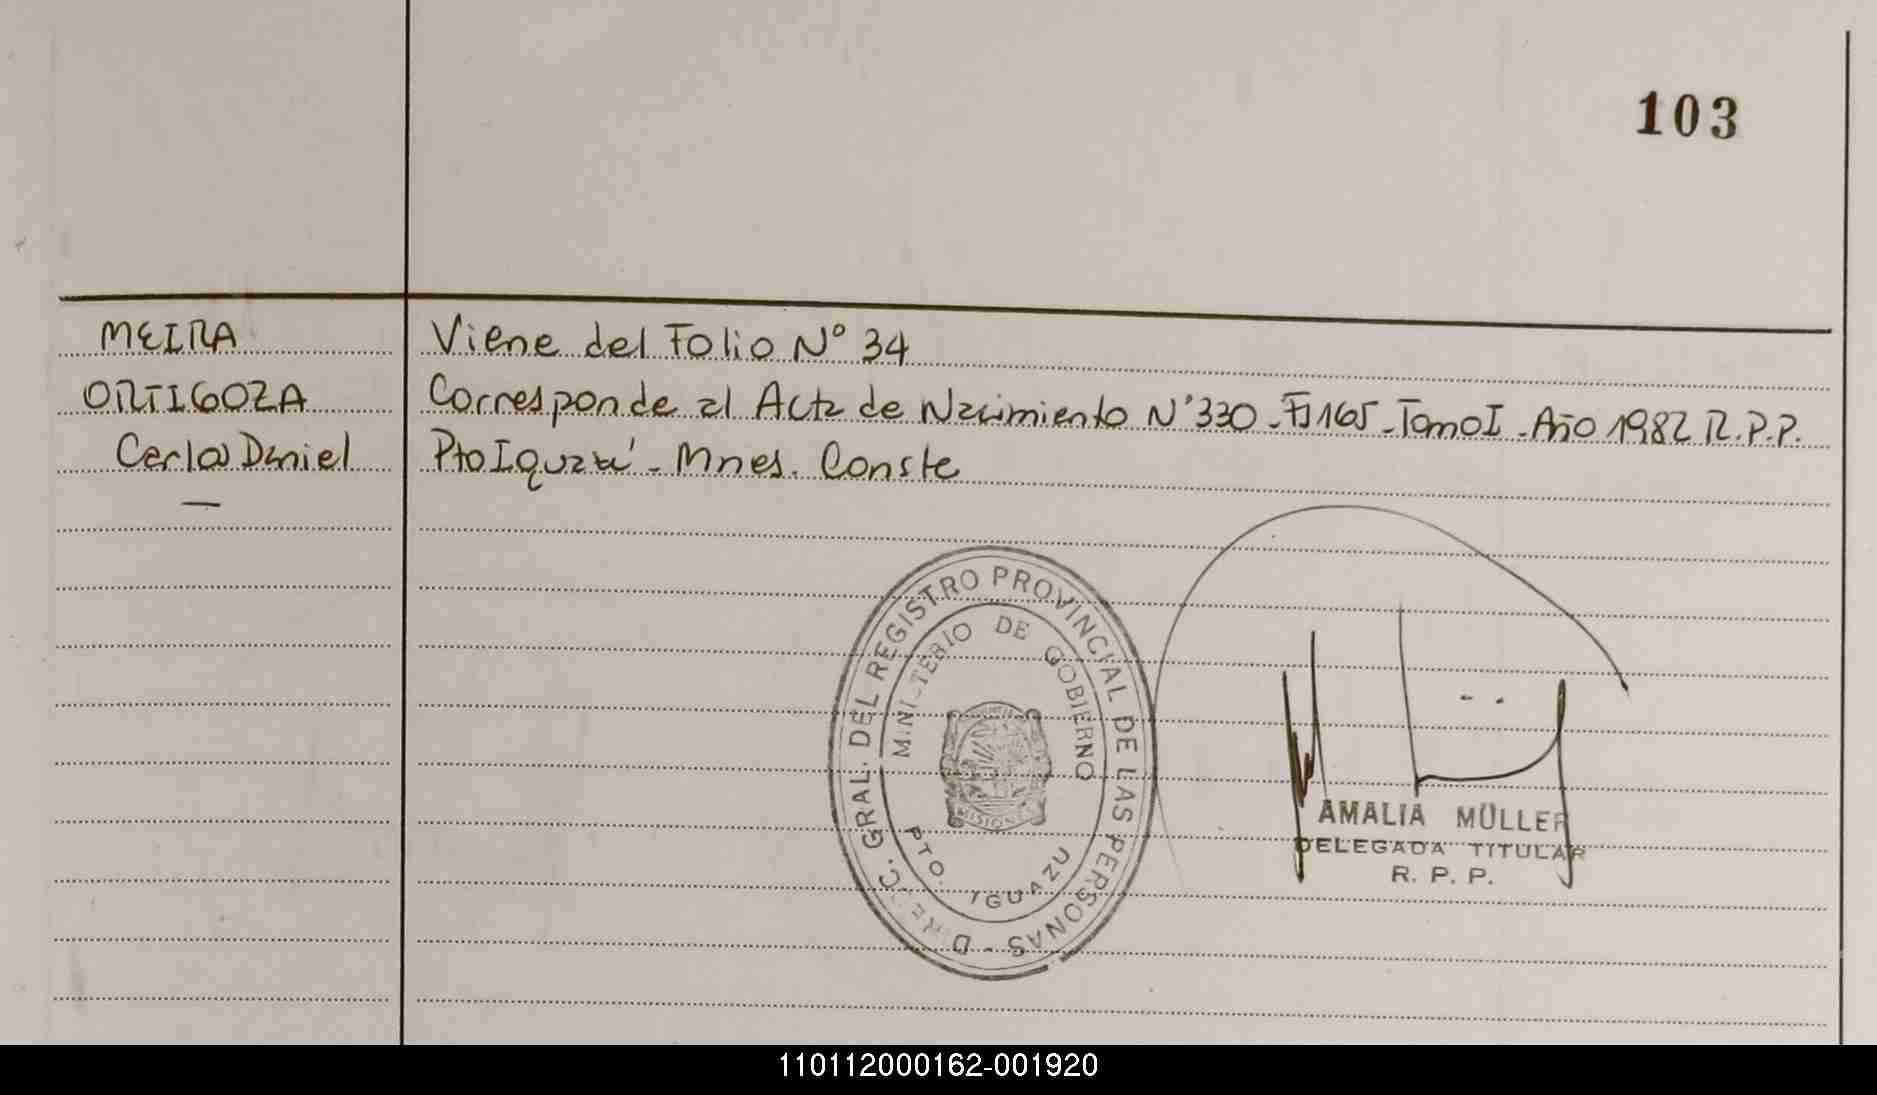 103
MEIRA
ORTIGOZA
Carlos Daniel
Viene del Folio Nº 34
Corresponde al Acta de Nacimiento Nº 330 - Fj 165 - Tomo I - Año 1982 R.P.P.
Pto Iguazú - Mnes. Conste
DIREC. GRAL. DEL REGISTRO PROVINCIAL DE LAS PERSONAS -
MINISTERIO DE GOBIERNO
MISIONES
PTO. IGUAZU
AMALIA MÜLLER
DELEGADA TITULAR
R. P. P.
110112000162-001920